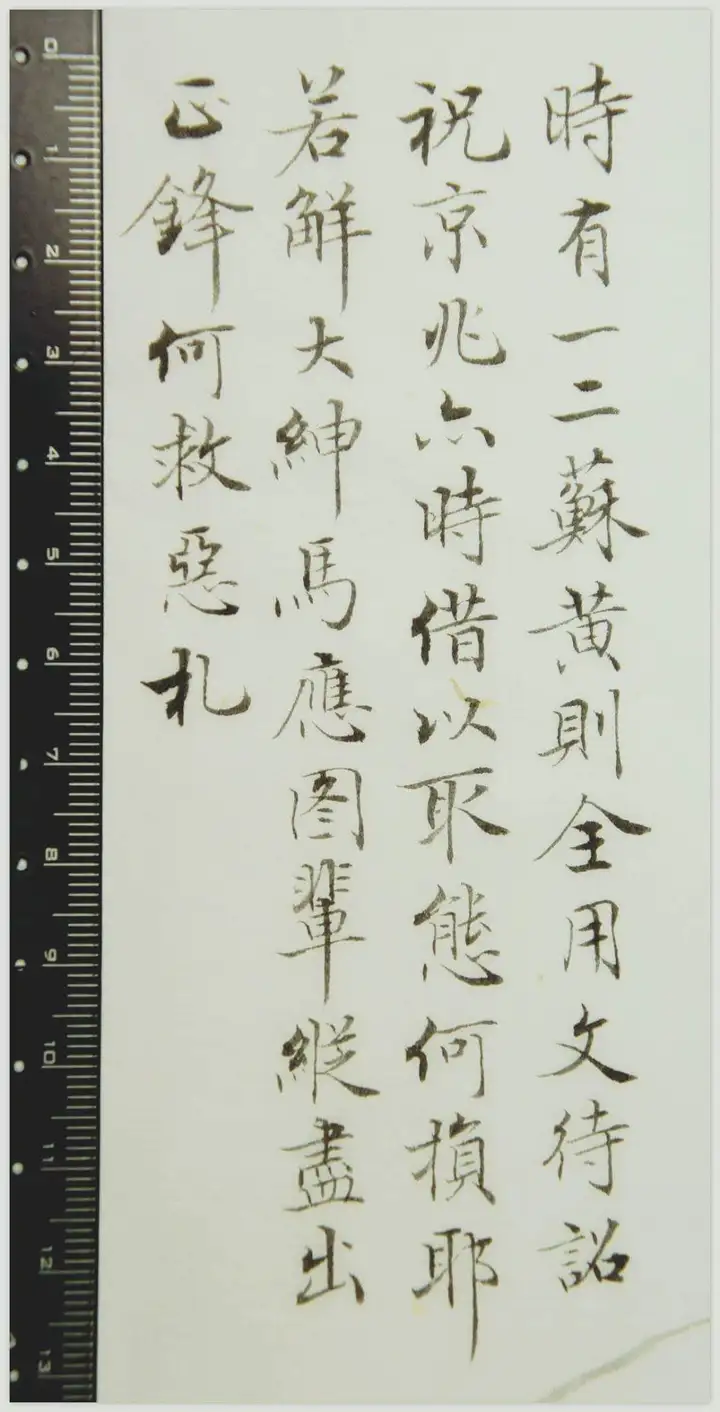 時有一二蘇黄則全用文待詔
祝京兆亦時借以取態何損耶
若解大紳馬應图輩縱盡出
正鋒何救惡札
0 1 2 3 4 5 6 7 8 9 10 11 12 13